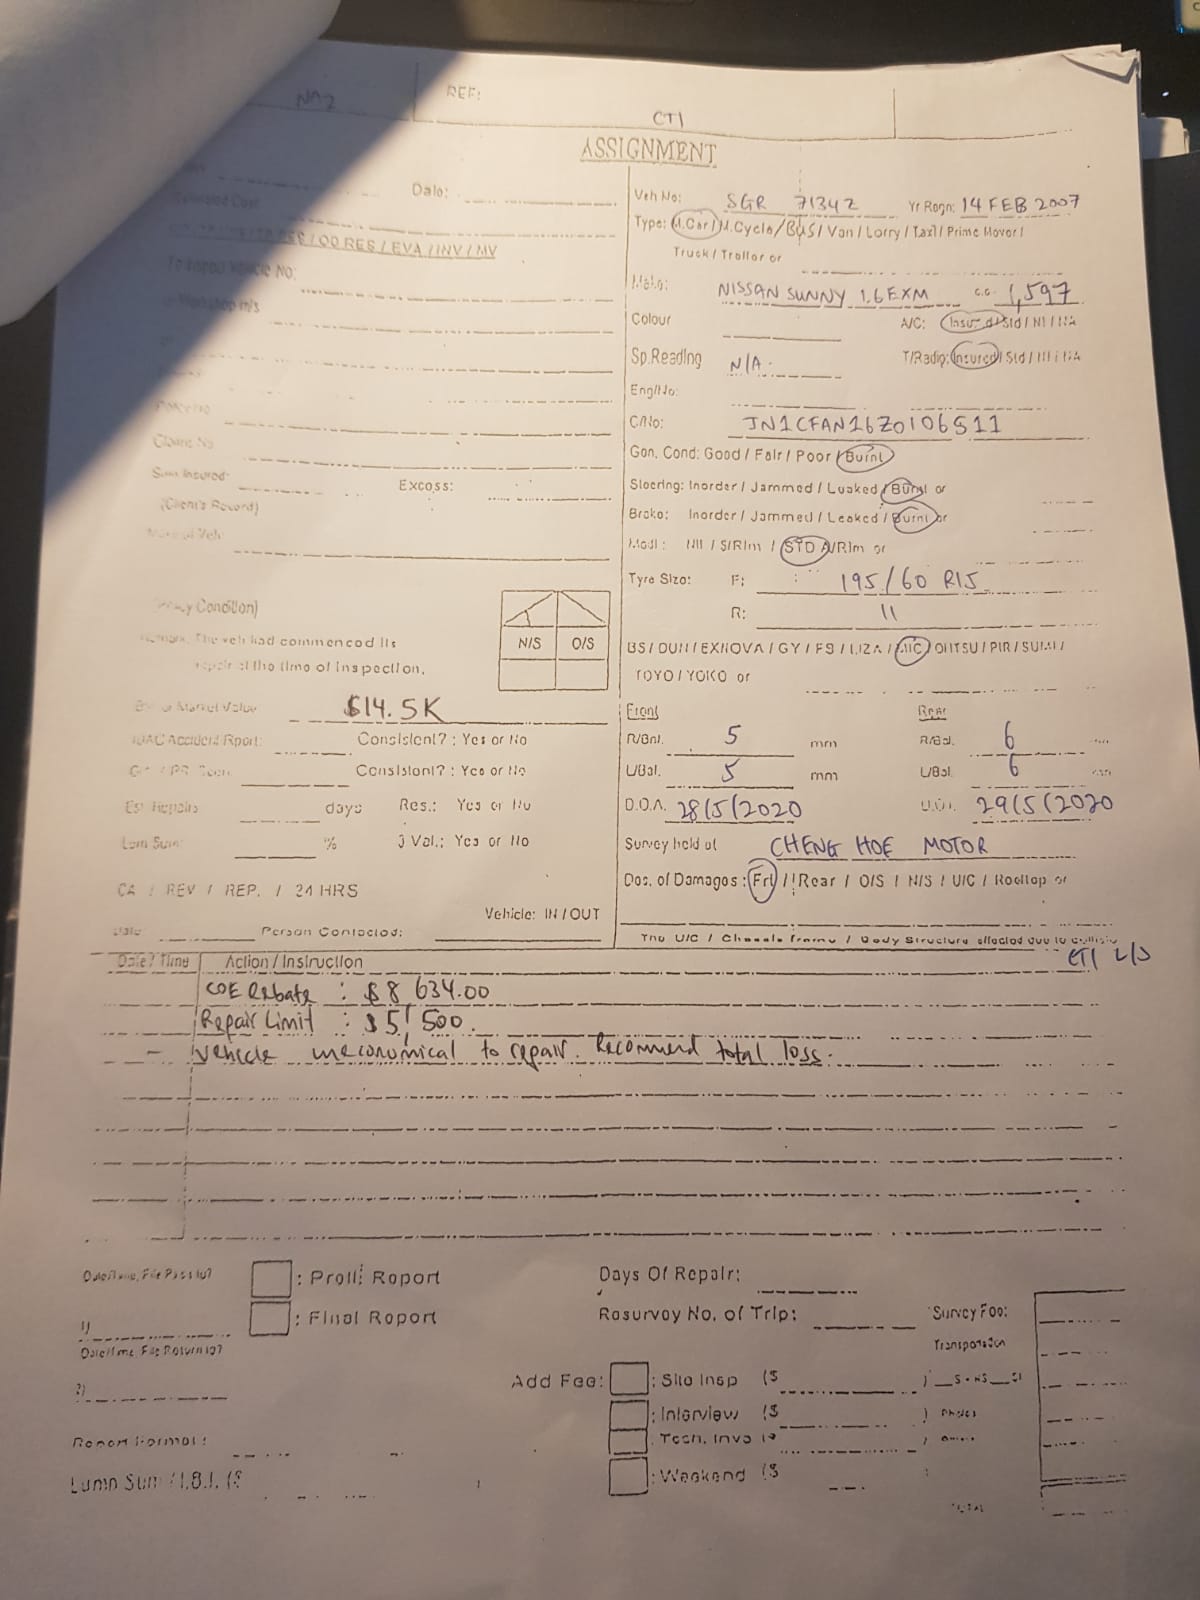 NA2
REF:
CTI
ASSIGNMENT
Date:
Veh No: SGR 7134Z Yr Regn: 14 FEB 2007
Type: M.Car / M.Cycle / BUS / Van / Lorry / Taxi / Prime Mover /
Truck / Trailor or
/ OD RES / EVA / INV / MV
Vehicle No:
Make: NISSAN SUNNY 1.6 EXM c.c. 1,597
Colour A/C: Insured / Std / NI / NA
Sp.Reading N/A. T/Radio: Insured / Std / NI / NA
Eng/No:
C/No: JN1CFAN16Z0106511
Claim No
Gen. Cond: Good / Fair / Poor / Burnt
Sum Insured: Excess:
(Client's Record)
Steering: Inorder / Jammed / Leaked / Burnt or
Brake: Inorder / Jammed / Leaked / Burnt or
Modi: Nil / S/Rim / STD A/Rim or
Tyre Size: F: 195/60 R15
R: 11
Condition)
N/S O/S
The veh had commenced its
repair at the time of inspection.
BS / DUN / EXNOVA / GY / FS / LIZA / MIC / OHTSU / PIR / SUMI /
TOYO / YOKO or
Market Value $14.5K
Front Rear
IDAC Accident Rport: Consistent? : Yes or No
R/Bal. 5 mm R/Bal. 6
Consistent? : Yes or No
L/Bal. 5 mm L/Bal. 6
Est Repairs days Res.: Yes or No
D.O.A. 28/5/2020 29/5/2020
Lum Sum: % 3 Val.: Yes or No
Survey held at CHENG HOE MOTOR
CA / REV / REP. / 24 HRS
Des. of Damages : Frt / Rear / O/S / N/S / U/C / Rooftop or
Vehicle: IN / OUT
Date: Person Contacted:
The U/C / Chassis frame / Body Structure affected due to collision
Date / Time Action / Instruction
COE Rebate : $8,634.00
Repair Limit : $5,500.
- Vehicle uneconomical to repair. Recommend total loss.
Date/Time, File Pass to?
: Preli: Report
Days Of Repair:
1)
: Final Report
Resurvey No. of Trip: Survey Fee:
Date/Time, File Return to?
Transportation
2)
Add Fee: : Site Insp ($
: Interview ($ ) Photos
: Tech. Inve
Report Format :
: Weekend ($
Lump Sum / I.B.I. ($
TOTAL